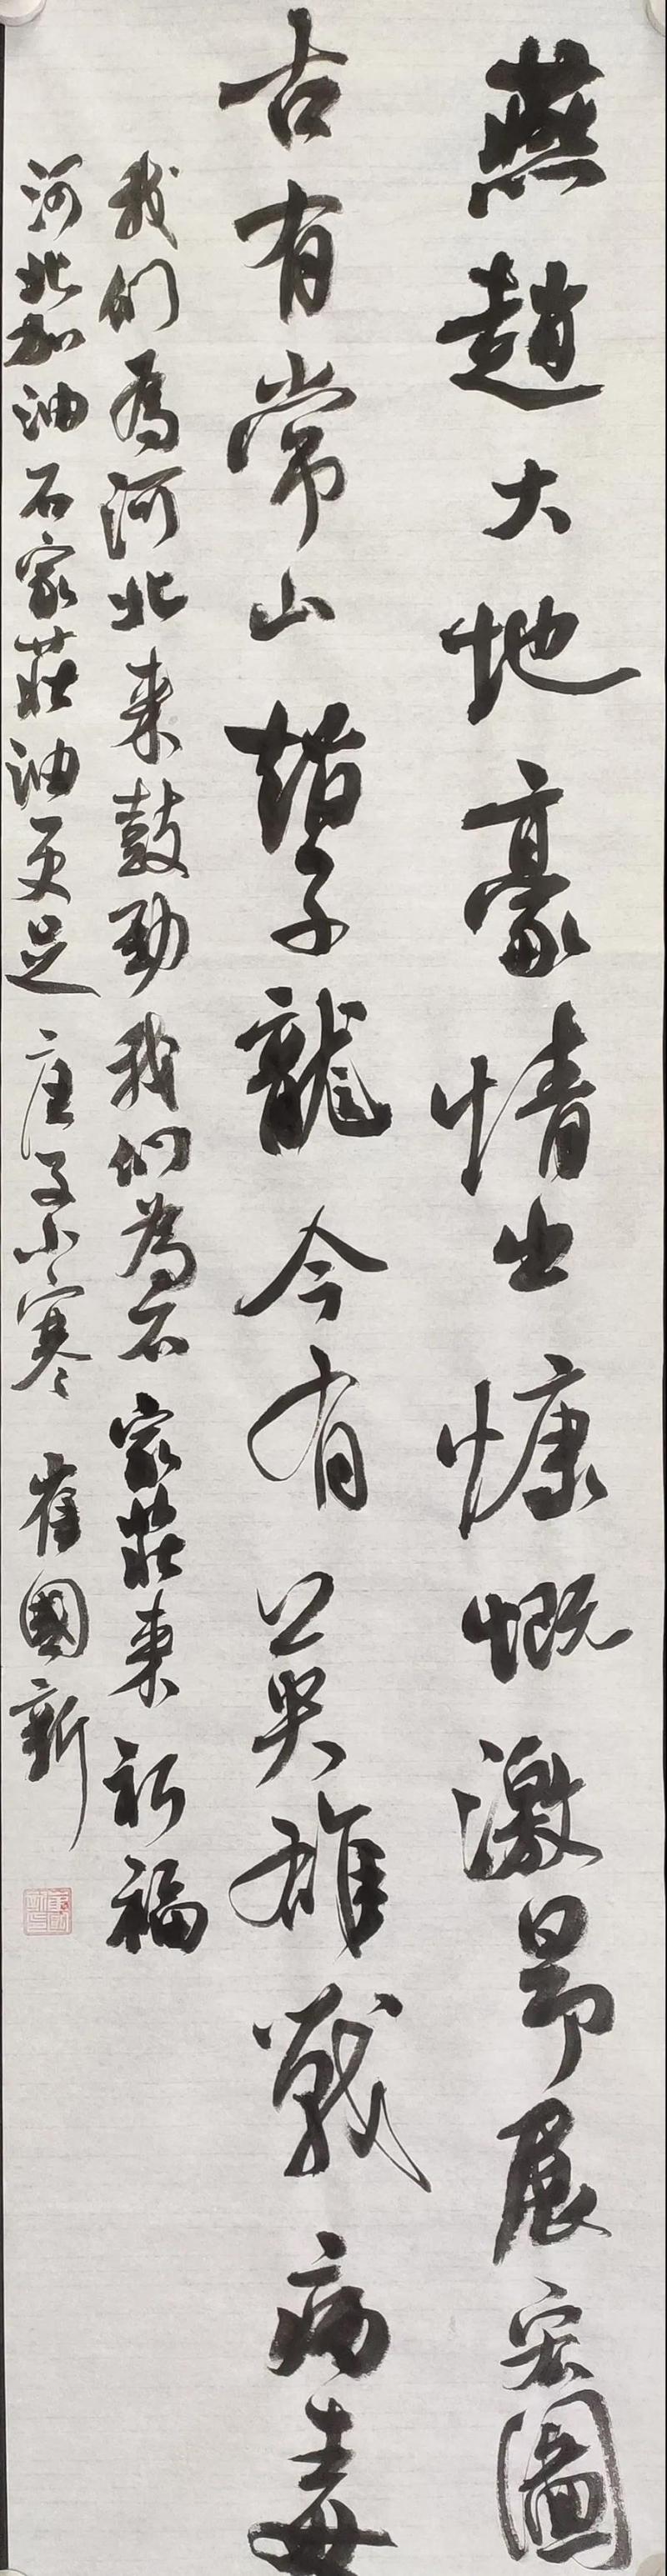 燕趙大地豪情出慷慨激昂展宏圖
古有常山趙子龍今有英雄戰病毒
我们為河北来鼓勁我们為石家莊来祈福
河北加油石家莊油更足庚子小寒崔國新